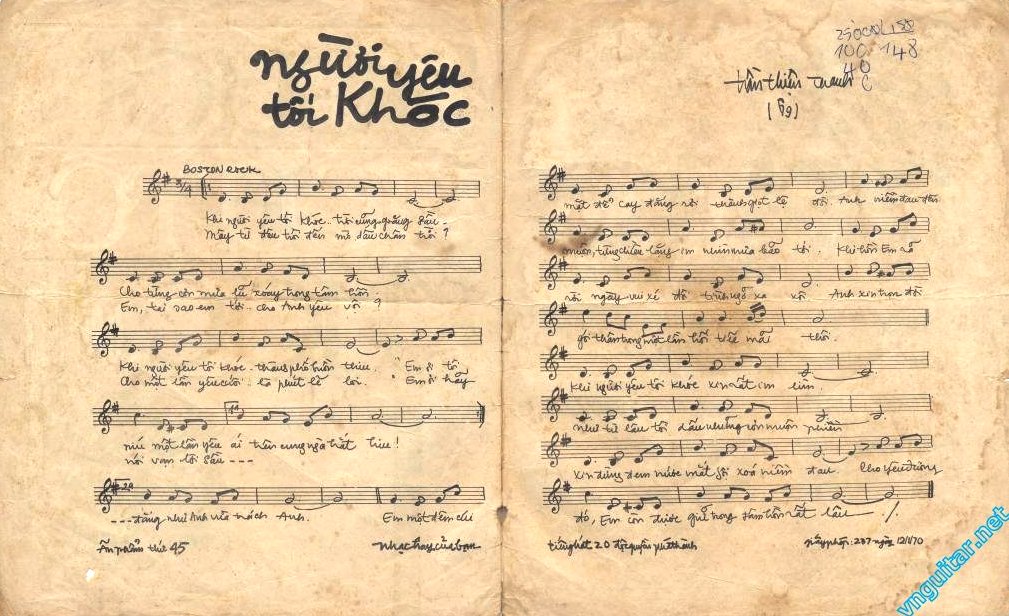 người yêu
tôi Khóc
BOSTON ROCK
Khi người yêu tôi khóc.. trời cũng giăng sầu.
Mây từ đâu trôi đến mờ dấu chân trời?
Cho từng cơn mưa lũ xoáy trong tâm hồn.
Em, tại sao em tôi.. cho Anh yêu vội?
Khi người yêu tôi khóc. thành phố buồn thiu. Em ơi
Cho một lần yêu cuối.. lỡ phút lẻ loi. Em ơi hãy
níu một lần yêu ái trên cung ngà hát hiu!
nói vạn lời sầu ---
--- đắng như Anh vừa trách Anh. Em một đêm
Ấn phẩm thứ 45
Nhạc hay của bạn
100 148
40
trần thiện thanh
(69)
mắt đổ cay đắng rồi thành giọt lệ đời. Anh mềm đau
muộn, từng chiều lặng im nhìn mưa bão tới. Khi hồn Em
rồi ngày vui xé đôi xa xôi Anh xin trọn đời
gói thân trong một lần hồi mãi thôi.
Khi người yêu tôi khóc xin rất im lìm.
như từ lâu tôi dấu những cơn muộn phiền
xin dùng đem nước mắt gội xoá niềm đau Cho yêu đương
đó, Em còn được giữ trong tâm hồn rất lâu
tiếng hát 20 độc quyền phát hành
Giấy phép: 237 ngày 12/1/70
vnguitar.net